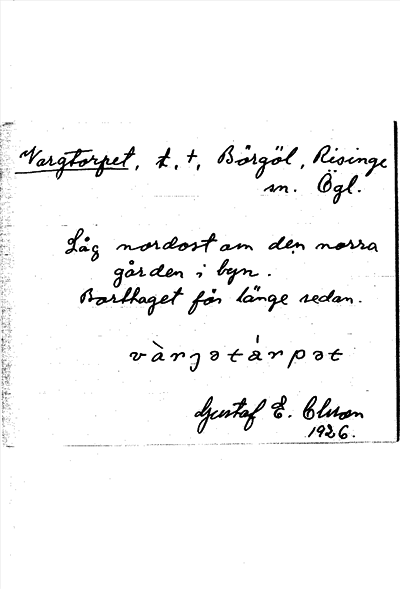 Vargtorpet, t. +, Börgöl, Risinge
sn. Ögl.
Låg nordost om den norra
gården i byn.
Borttaget för länge sedan.
vàrjətårpət
Gustaf E. Olsson
1926.